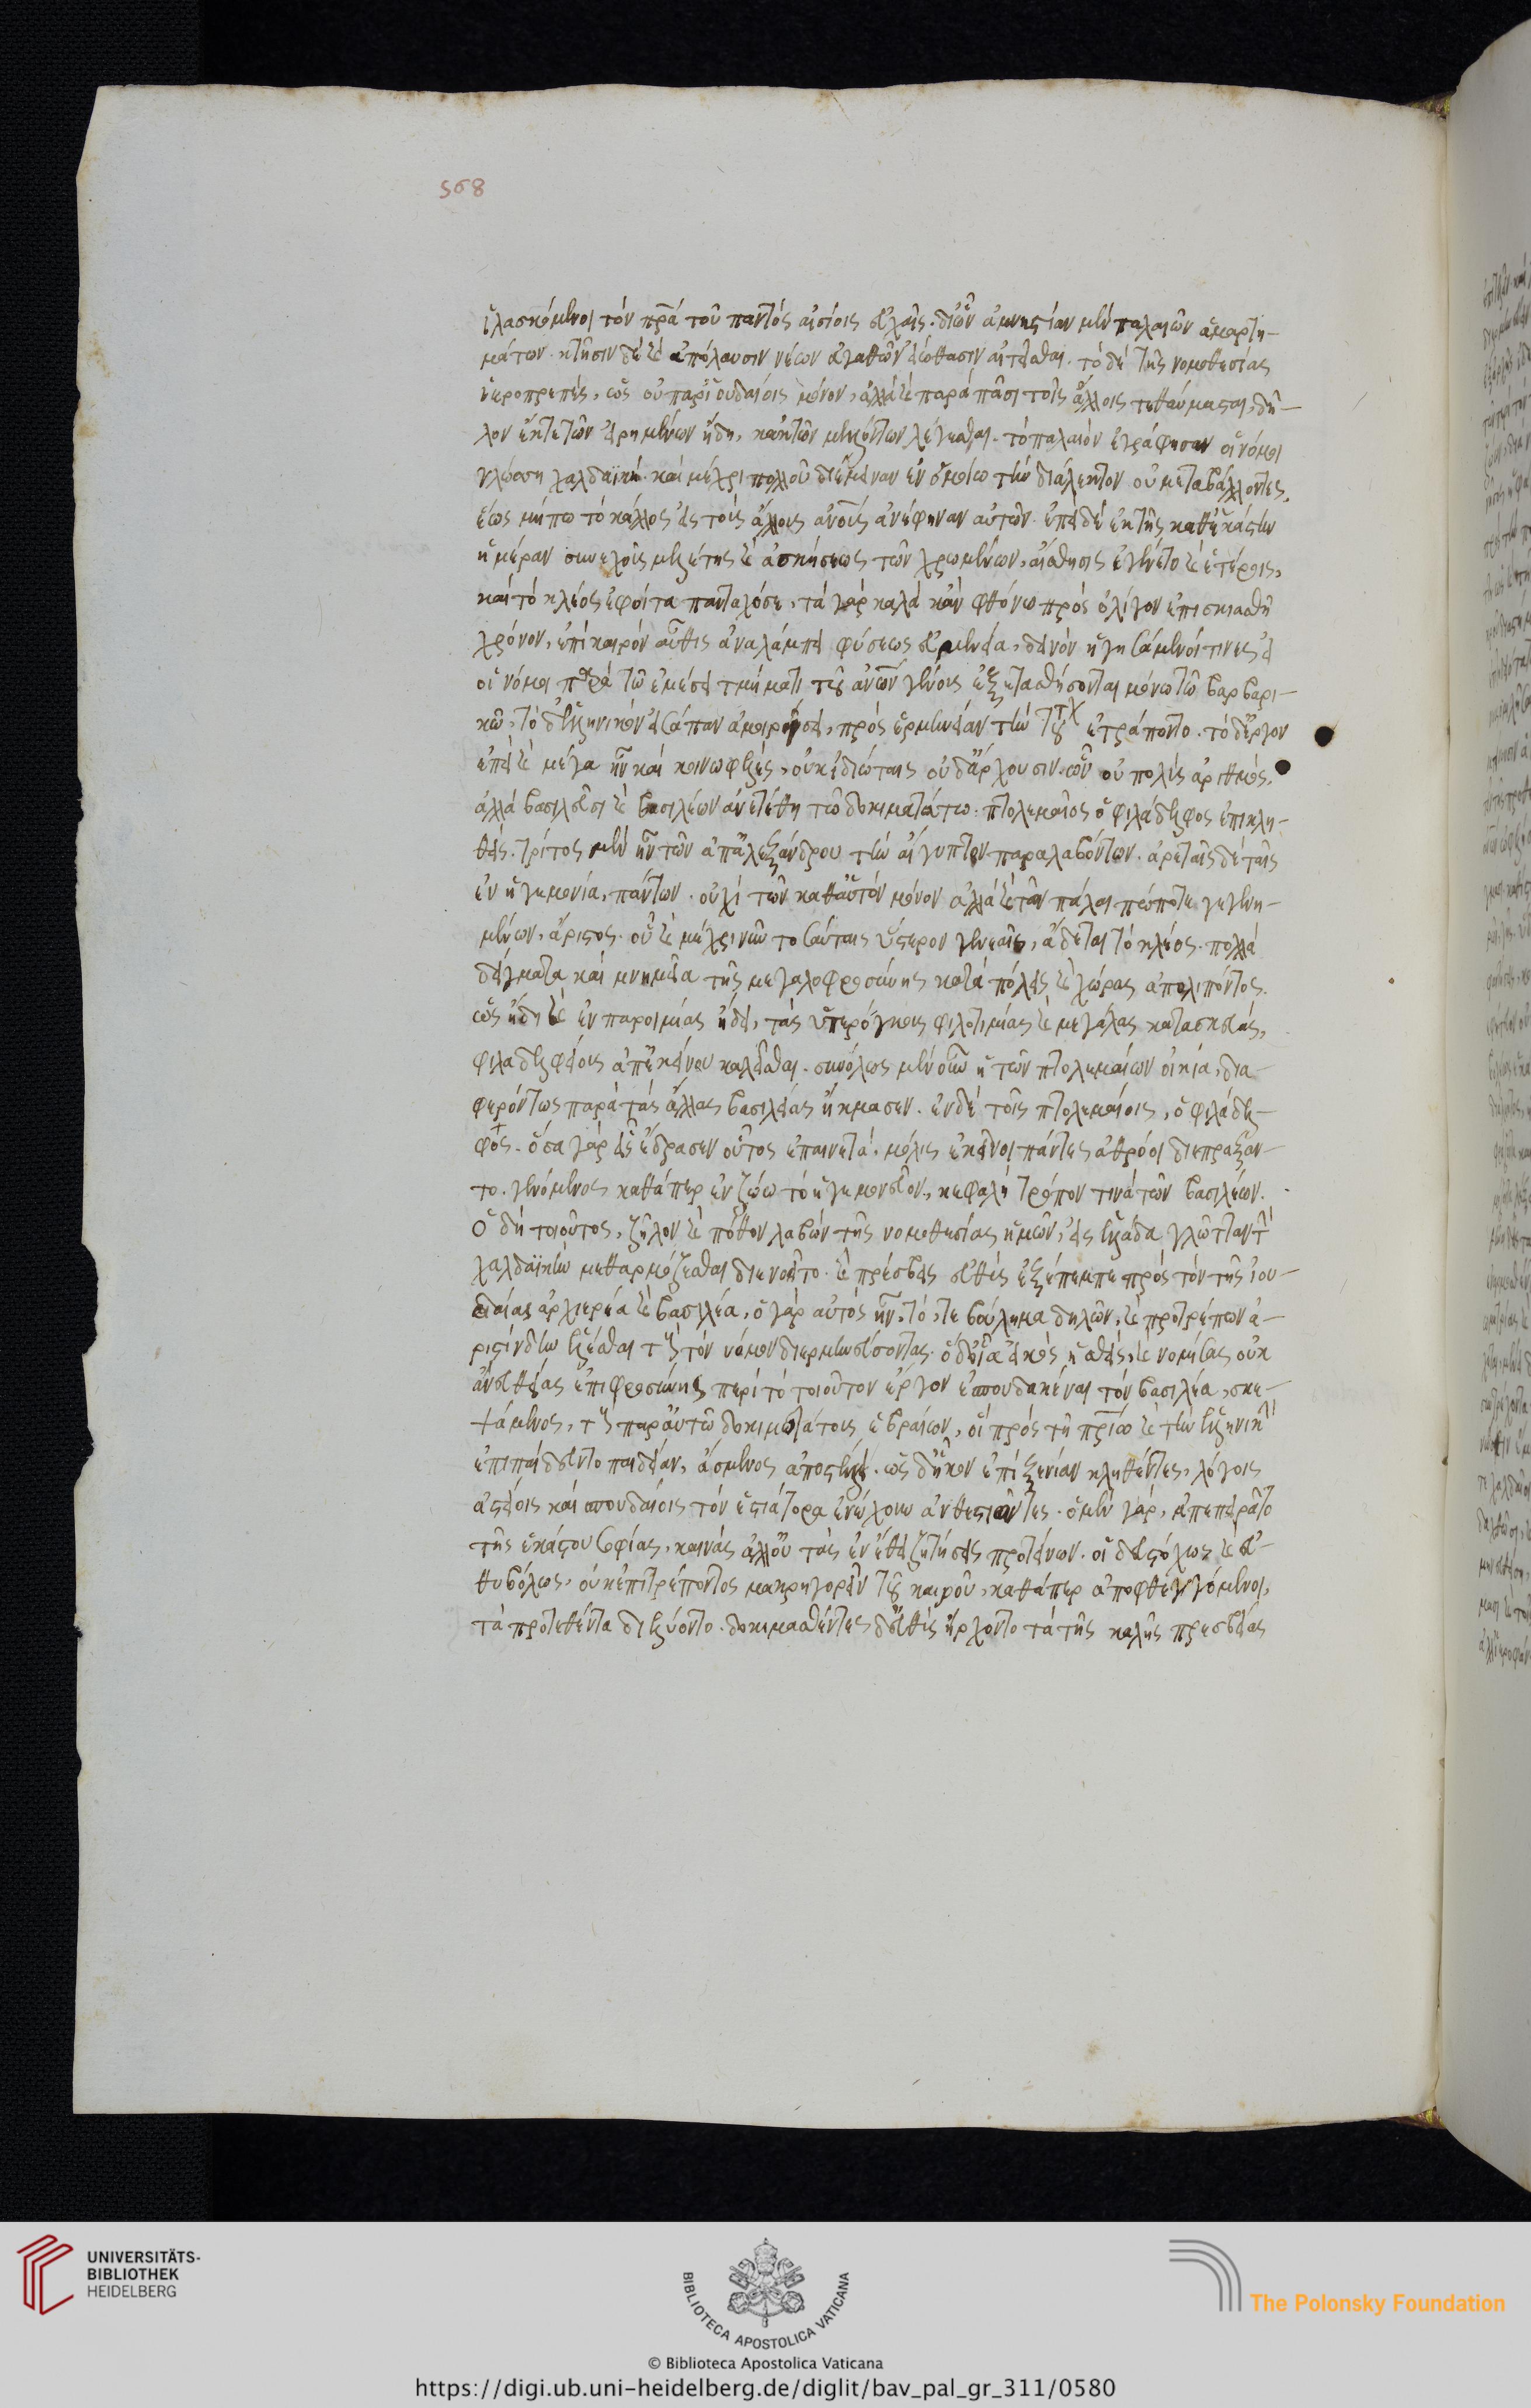 568
ἱλασκόμενοι τὸν πρα τοῦ παντὸς αἰσίοις εὐχαῖς. δι' ὧν ἀμνηστίαν μὲν παλαιῶν ἁμαρτη-
μάτων. κτῆσιν δὲ καὶ ἀπόλαυσιν νέων ἀγαθῶν εἰώθασιν αἰτεῖσθαι. τὸ δὲ τῆς νομοθεσίας
ἱεροπρεπές, ὡς οὐ παρ' ἰουδαίοις μόνον, ἀλλὰ καὶ παρὰ πᾶσι τοῖς ἄλλοις τεθαύμασται, δῆ-
λον ἔκ τε τῶν εἰρημένων ἤδη, κἀκ τῶν μελλόντων λέγεσθαι. τὸ παλαιὸν ἐγράφησαν οἱ νόμοι
γλώσση χαλδαϊκῆ. καὶ μέχρι πολλοῦ διέμειναν ἐν ὁμοίω τὴν διάλεκτον οὐ μεταβάλλοντες,
ἕως μήπω τὸ κάλλος εἰς τοὺς ἄλλους ἀνους ἀνέφηναν αὐτῶν. ἐπεὶ δὲ ἐκ τῆς καθ' ἑκάστην
ἡμέραν συνεχοῦς μελέτης καὶ ἀσκήσεως τῶν χρωμένων, αἴσθησις ἐγένετο καὶ ἑτέροις,
καὶ τὸ κλέος ἐφοίτα πανταχόσε, τὰ γὰρ καλὰ κἂν φθόνω πρὸς ὀλίγον ἐπισκιασθῆ
χρόνον, ἐπὶ καιρὸν αὖθις ἀναλάμπει φύσεως εὐμενεία, δεινὸν ἡγησάμενοί τινες εἰ
οἱ νόμοι παρὰ τῶ ἡμίσει τμήματι τοῦ ἀνων γένους ἐξετασθήσονται μόνω τῶ βαρβαρι-
κῶ, τὸ δ' ἑλληνικὸν εἰσάπαν ἀμοιρήσει, πρὸς ἑρμηνείαν τὴν τούτχ ἐτράποντο. τὸ δ' ἔργον
ἐπεὶ καὶ μέγα ἦν καὶ κοινωφελές, οὐκ ἰδιώταις οὐδ' ἄρχουσιν. ὧν οὐ πολὺς ἀριθμός.
ἀλλὰ βασιλεῦσι καὶ βασιλέων ἀνετέθη τῶ δοκιμωτάτω. πτολεμαῖος ὁ φιλάδελφος ἐπικλη-
θείς. τρίτος μὲν ἦν τῶν ἀπ' ἀλεξάνδρου τὴν αἴγυπτον παραλαβόντων. ἀρεταῖς δὲ ταῖς
ἐν ἡγεμονία, πάντων. οὐχὶ τῶν καθ' αὑτὸν μόνον ἀλλὰ καὶ τῶν πάλαι πώποτε γεγενη-
μένων, ἄριστος. οὗ καὶ μέχρι νῦν τοσαύταις ὕστερον γενεαῖς, ἄδεται τὸ κλέος. πολλὰ
δείγματα καὶ μνημεῖα τῆς μεγαλοφροσύνης κατὰ πόλεις καὶ χώρας ἀπολιπόντος.
ὡς ἤδη καὶ ἐν παροιμίας εἴδει, τὰς ὑπερόγκους φιλοτιμίας καὶ μεγάλας κατασκευάς,
φιλαδελφείους ἀπ' ἐκείνου καλεῖσθαι. συνόλως μὲν οὖν ἡ τῶν πτολεμαίων οἰκία, δια-
φερόντως παρὰ τὰς ἄλλας βασιλείας ἤκμασεν. ἐν δὲ τοῖς πτολεμαίοις, ὁ φιλάδελ-
φος. ὅσα γὰρ εἷς ἔδρασεν οὗτος ἐπαινετά. μόλις ἐκεῖνοι πάντες ἀθρόοι διεπράξαν-
το. γενόμενος καθάπερ ἐν ζώω τὸ ἡγεμονεῦον, κεφαλὴ τρόπον τινὰ τῶν βασιλέων.
ὁ δὴ τοιοῦτος, ζῆλον καὶ πόθον λαβὼν τῆς νομοθεσίας ἡμῶν, εἰς ἑλλάδα γλῶτταν τ
χαλδαϊκὴν μεθαρμόζεσθαι διενοεῖτο. καὶ πρέσβεις εὐθὺς ἐξέπεμπε πρὸς τὸν τῆς ἰου-
δαίας ἀρχιερέα καὶ βασιλέα, ὁ γὰρ αὐτὸς ἦν, τό, τε βούλημα δηλῶν, καὶ προτρέπων ἀ-
ριστίνδην ἑλέσθαι τοὺς τὸν νόμον διερμηνεύσοντας. ὁ δ' οἷα εἰκὸς ἡσθείς, καὶ νομίσας οὐκ
ἄνευ θείας ἐπιφροσύνης περὶ τὸ τοιοῦτον ἔργον ἐσπουδακέναι τὸν βασιλέα, σκε-
ψάμενος, τοὺς παρ' αὑτῶ δοκιμωτάτους ἑβραίων, οἳ πρὸς τῆ πρίω καὶ τὴν ἑλληνικ
ἐπεπαίδευντο παιδείαν, ἄσμενος ἀποστέλλει. ὡς δ' ἧκον ἐπὶ ξενίαν κληθέντες, λόγοις
ἀστείοις καὶ σπουδαίοις τὸν ἑστιάτορα εὐώχουν ἀνθεστιῶντες. ὁ μὲν γὰρ, ἀπεπειρᾶτο
τῆς ἑκάστου σοφίας, καινὰς ἀλλ' οὐ τὰς ἐν ἔθει ζητήσεις προτείνων. οἱ δ' εὐστόχως καὶ εὐ-
θυβόλως, οὐκ ἐπιτρέποντος μακρηγορεῖν τοῦ καιροῦ, καθάπερ ἀποφθεγγόμενοι,
τὰ προτεθέντα διελύοντο. δοκιμασθέντες δ' εὐθὺς ἤρχοντο τὰ τῆς καλῆς πρεσβείας
UNIVERSITÄTS-
BIBLIOTHEK
HEIDELBERG
BIBLIOTECA APOSTOLICA VATICANA
The Polonsky Foundation
© Biblioteca Apostolica Vaticana
https://digi.ub.uni-heidelberg.de/diglit/bav_pal_gr_311/0580